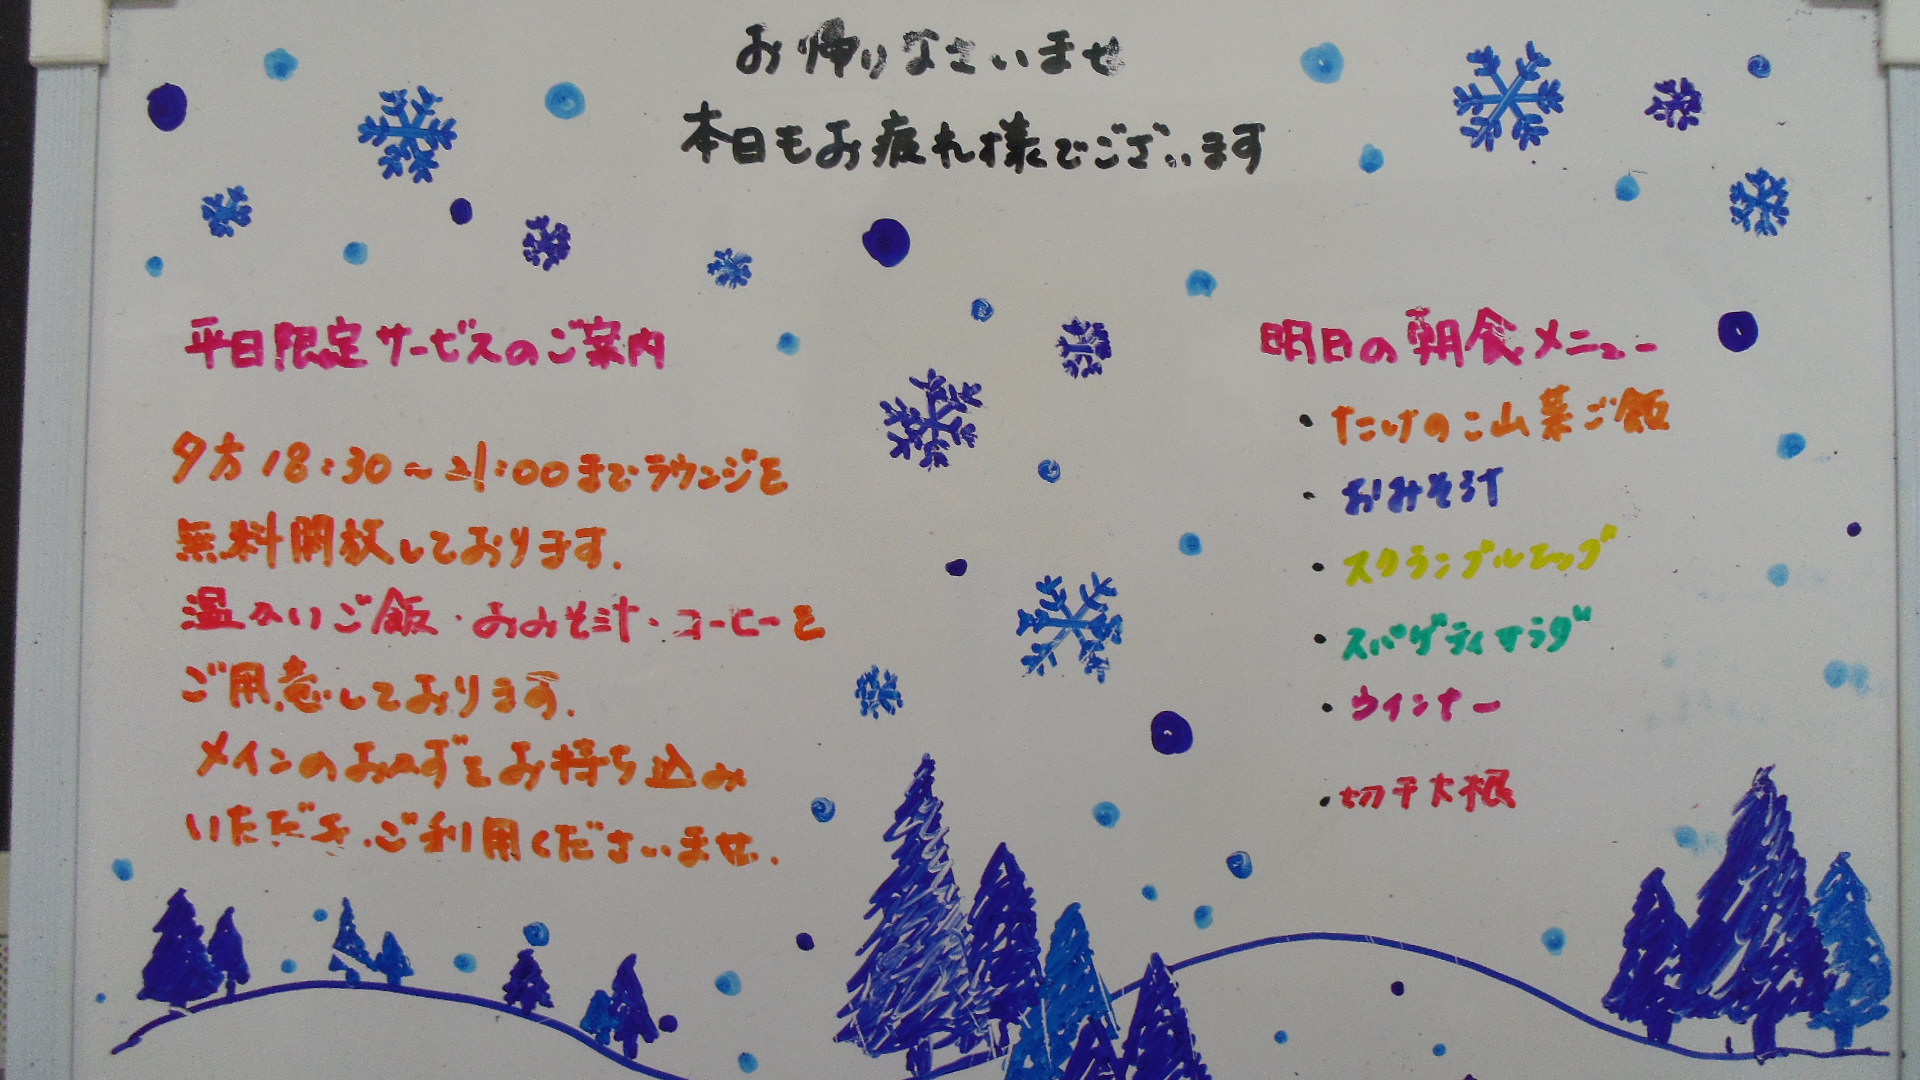 お帰りなさいませ
本日もお疲れ様でございます
平日限定サービスのご案内
夕方18:30～21:00までラウンジを
無料開放しております.
温かいご飯・おみそ汁・コーヒーを
ご用意しております.
メインのおかずをお持ち込み
いただき、ご利用くださいませ.
明日の朝食メニュー
・たけのこ山菜ご飯
・おみそ汁
・スクランブルエッグ
・スパゲティサラダ
・ウインナー
・切干大根